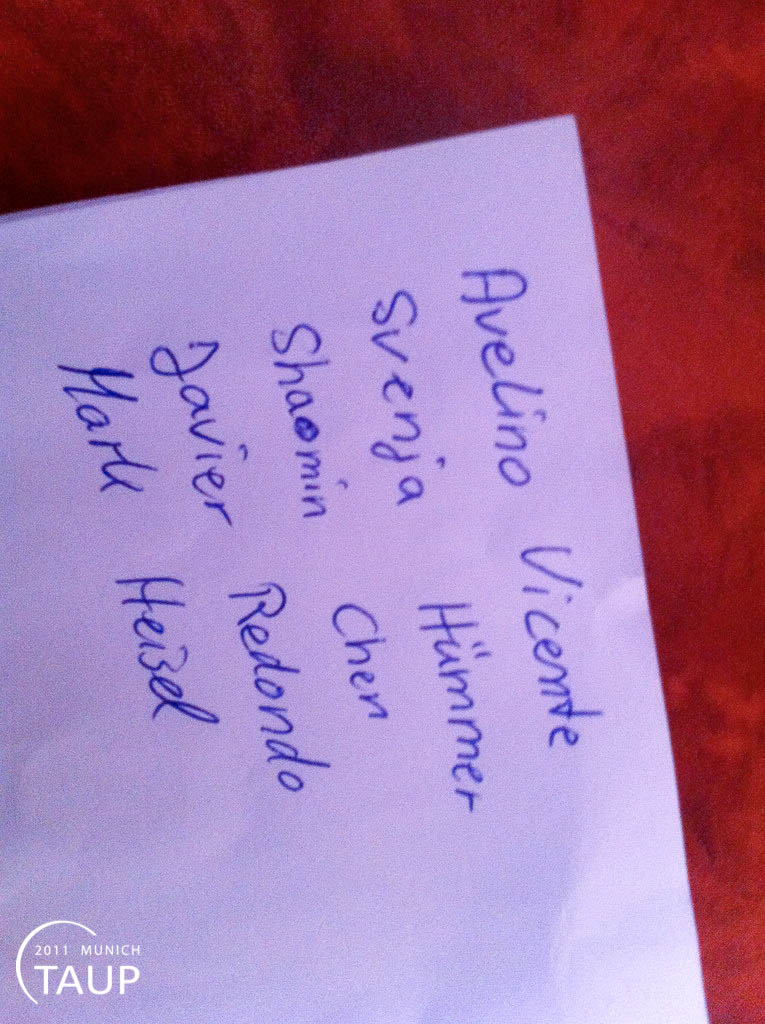 Avelino Vicente
Svenja Hümmer
Shaomin Chen
Javier Redondo
Mark Heisel
2011 MUNICH
TAUP